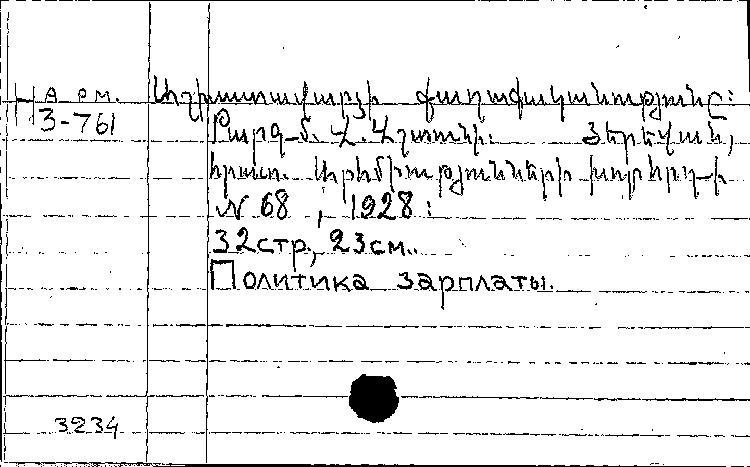 Աշխատավարձի քաղաքականությունը:
Н Арм.
3-761
Թարգ-մ. Հ. Աշտունի. Յերեվան,
հրատ. Արհմիությունների խորհրդ-ի
№ 68, 1928:
32стр, 23см..
Политика зарплаты.
3234